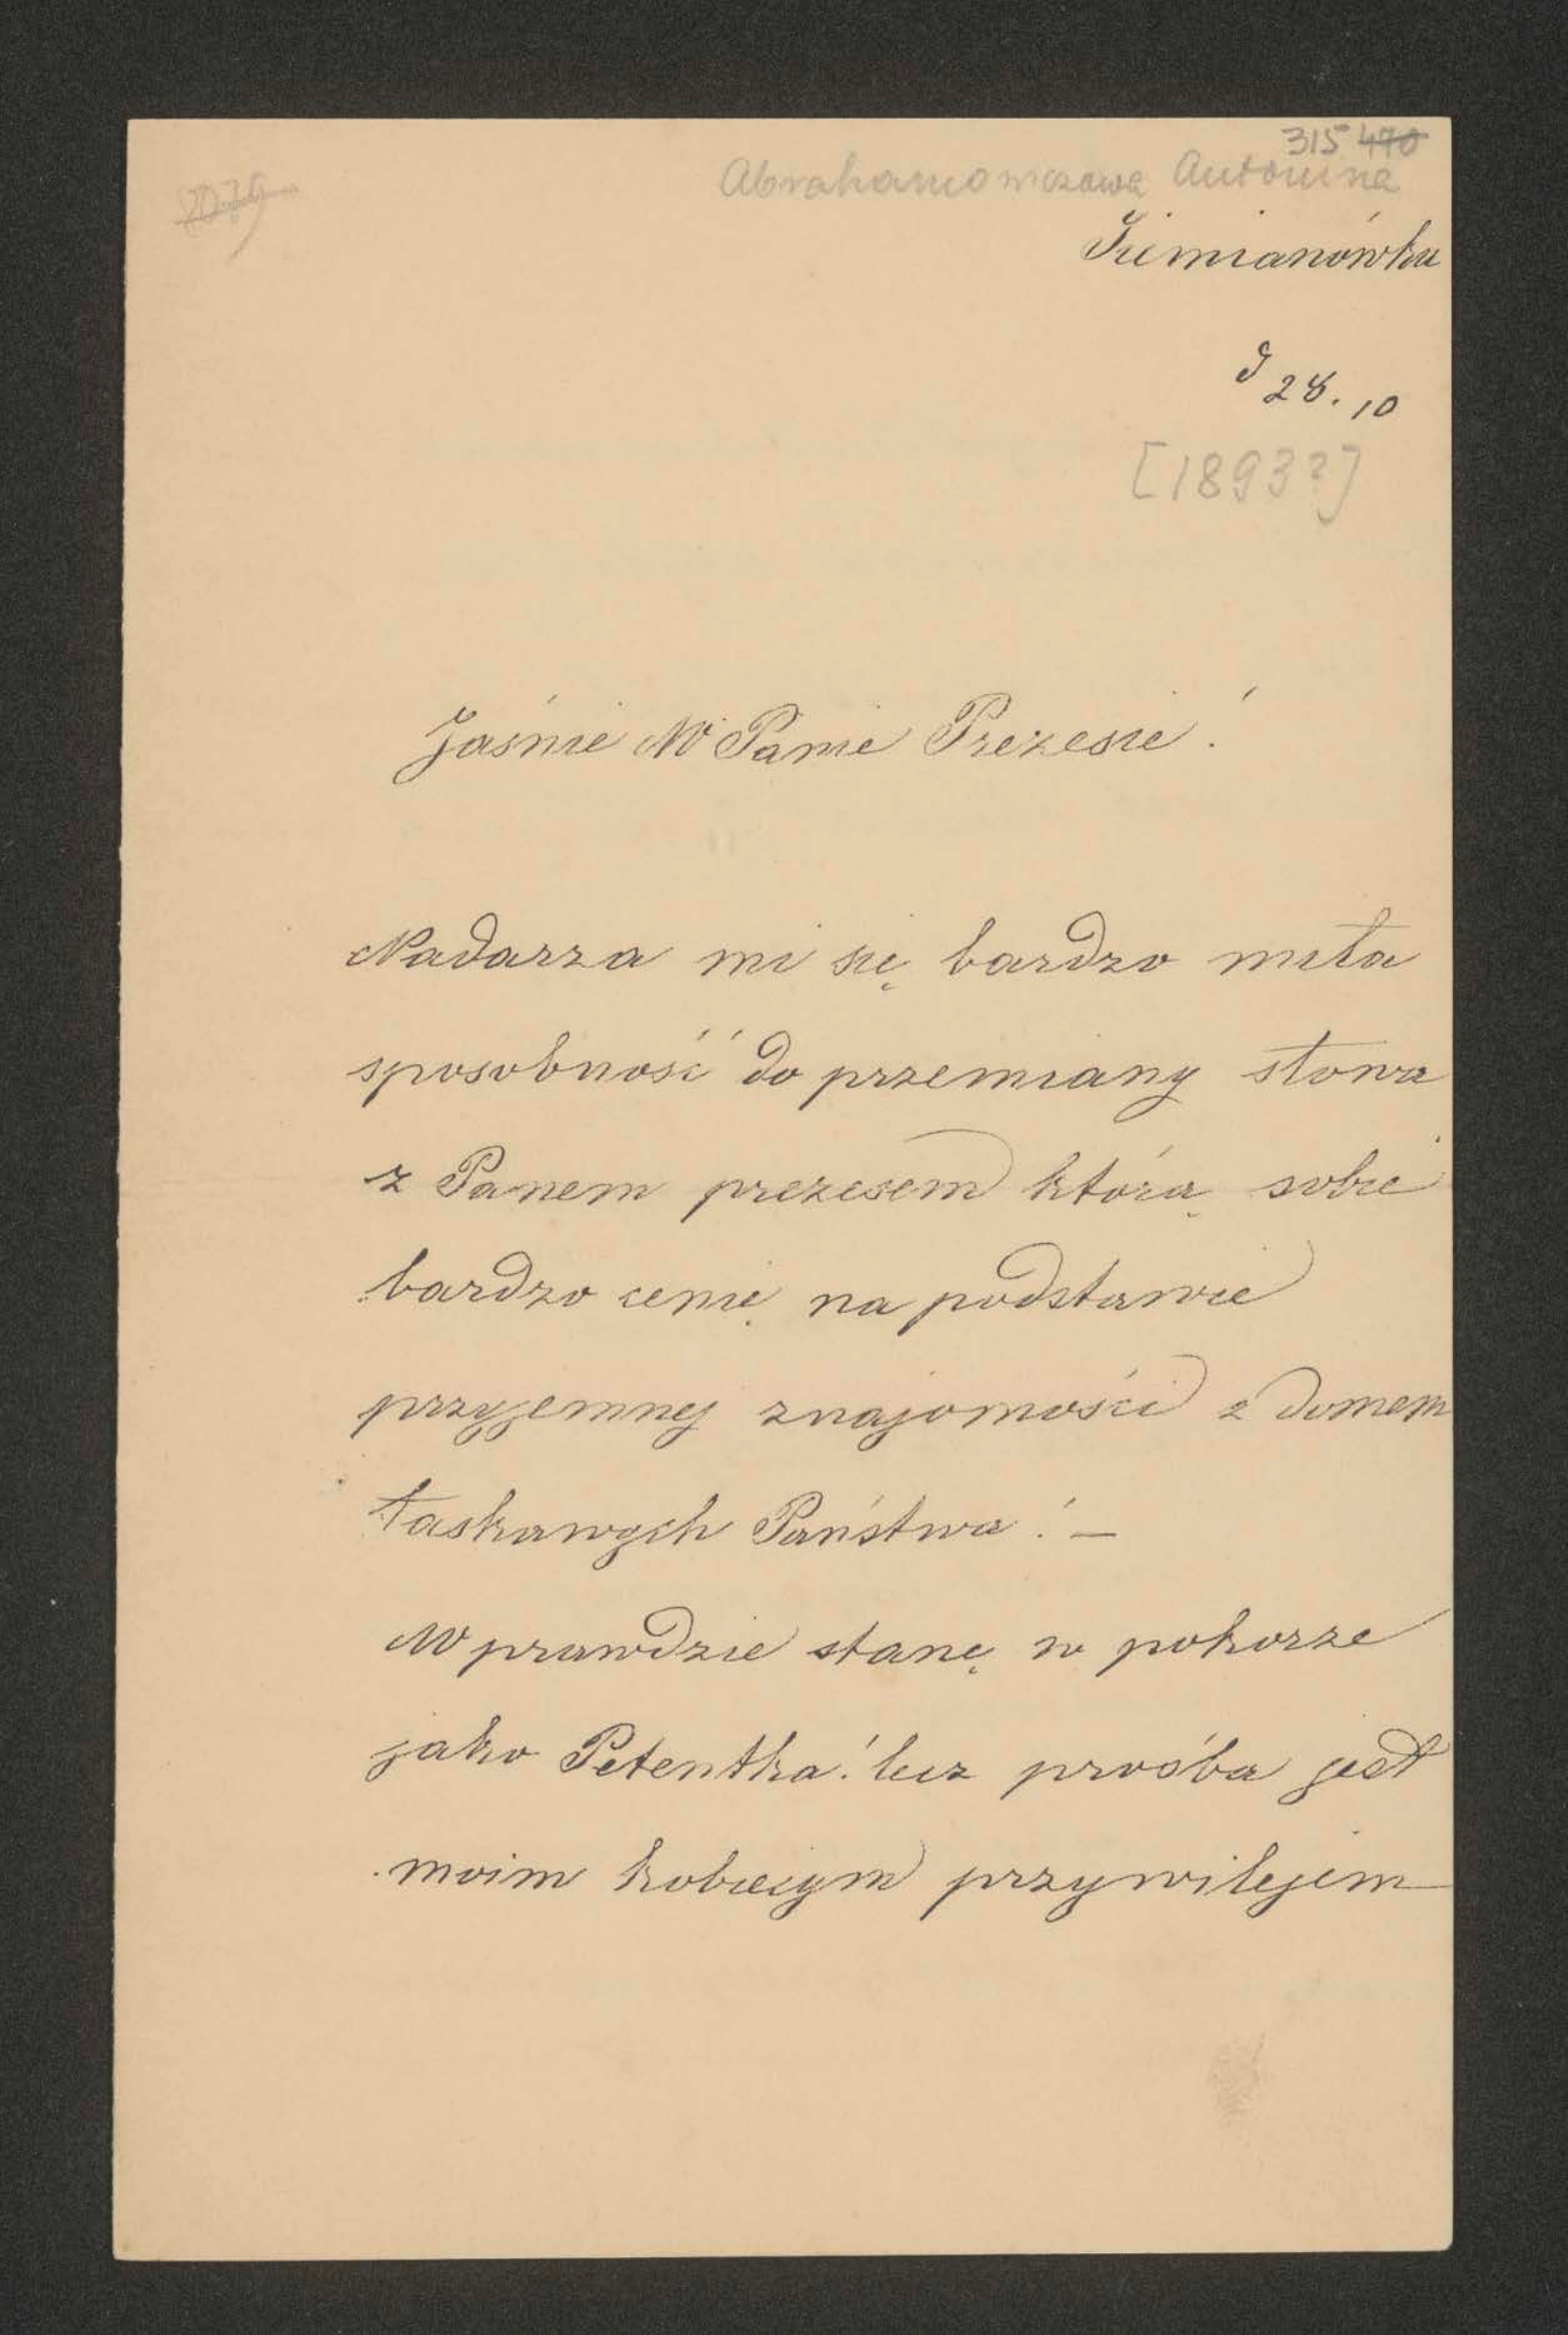 315 470
Abrahamowiczowa Antonina
Siemianówka
d 28. 10
[1893?]
Jaśnie W Panie Prezesie!
Nadarza mi się bardzo miła
sposobność do przemiany słowa
z Panem prezesem którą sobie
bardzo cenię na podstawie
przyjemnej znajomości z domem
łaskawych Państwa! –
W prawdzie stanę w pokorze
jako Petentka! lecz prośba jest
moim kobiecym przywilejem